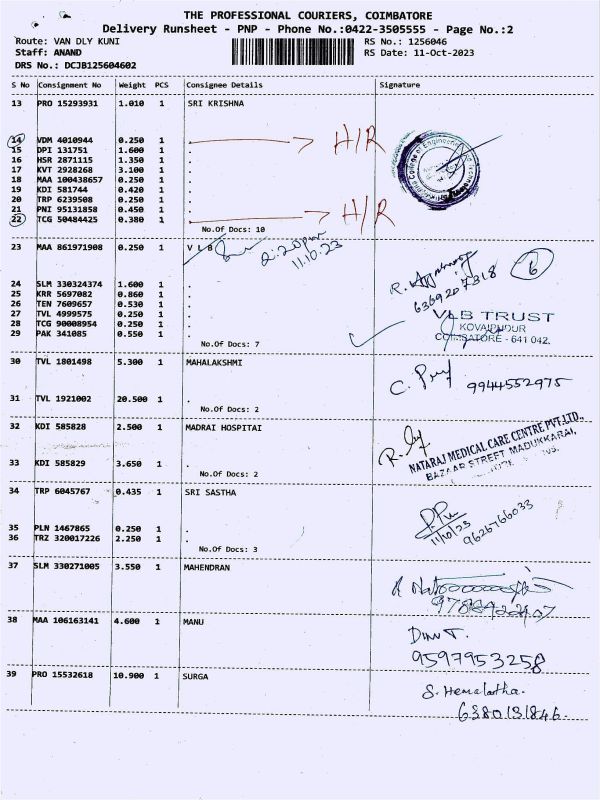 THE PROFESSIONAL COURIERS, COIMBATORE
Delivery Runsheet - PNP - Phone No.:0422-3505555 - Page No.:2
Route: VAN DLY KUNI RS No.: 1256046
Staff: ANAND RS Date: 11-Oct-2023
DRS No.: DCJB125604602
S No Consignment No Weight PCS Consignee Details Signature
13 PRO 15293931 1.010 1 SRI KRISHNA
14 VDM 4010944 0.250 1 . H/R
15 DPI 131751 1.600 1 .
16 HSR 2871115 1.350 1 .
17 KVT 2928268 3.100 1 .
18 MAA 100438657 0.250 1 .
19 KDI 581744 0.420 1 .
20 TRP 6239508 0.250 1 .
21 PNI 95131858 0.450 1 .
22 TCG 50484425 0.380 1 . H/R
No.Of Docs: 10
23 MAA 861971908 0.250 1 V L B 2.20pm
11.10.23
6
6369207318
24 SLM 330324374 1.600 1 .
25 KRR 5697082 0.860 1 .
26 TEN 7609657 0.530 1 .
27 TVL 4999575 0.250 1 .
28 TCG 90008954 0.250 1 .
29 PAK 341085 0.550 1 .
No.Of Docs: 7
VLB TRUST
KOVAIPUDUR
COIMBATORE - 641 042.
30 TVL 1801498 5.300 1 MAHALAKSHMI
9944552975
31 TVL 1921002 20.500 1 .
No.Of Docs: 2
32 KDI 585828 2.500 1 MADRAI HOSPITAI
NATARAJ MEDICAL CARE CENTRE PVT.LTD.,
BAZAAR STREET MADUKKARAI,
33 KDI 585829 3.650 1 .
No.Of Docs: 2
34 TRP 6045767 0.435 1 SRI SASTHA
11/10/23 9626766033
35 PLN 1467865 0.250 1 .
36 TRZ 320017226 2.250 1 .
No.Of Docs: 3
37 SLM 330271005 3.550 1 MAHENDRAN
38 MAA 106163141 4.600 1 MANU
9597953258
39 PRO 15532618 10.900 1 SURGA
S. Hemalatha.
6380131846.